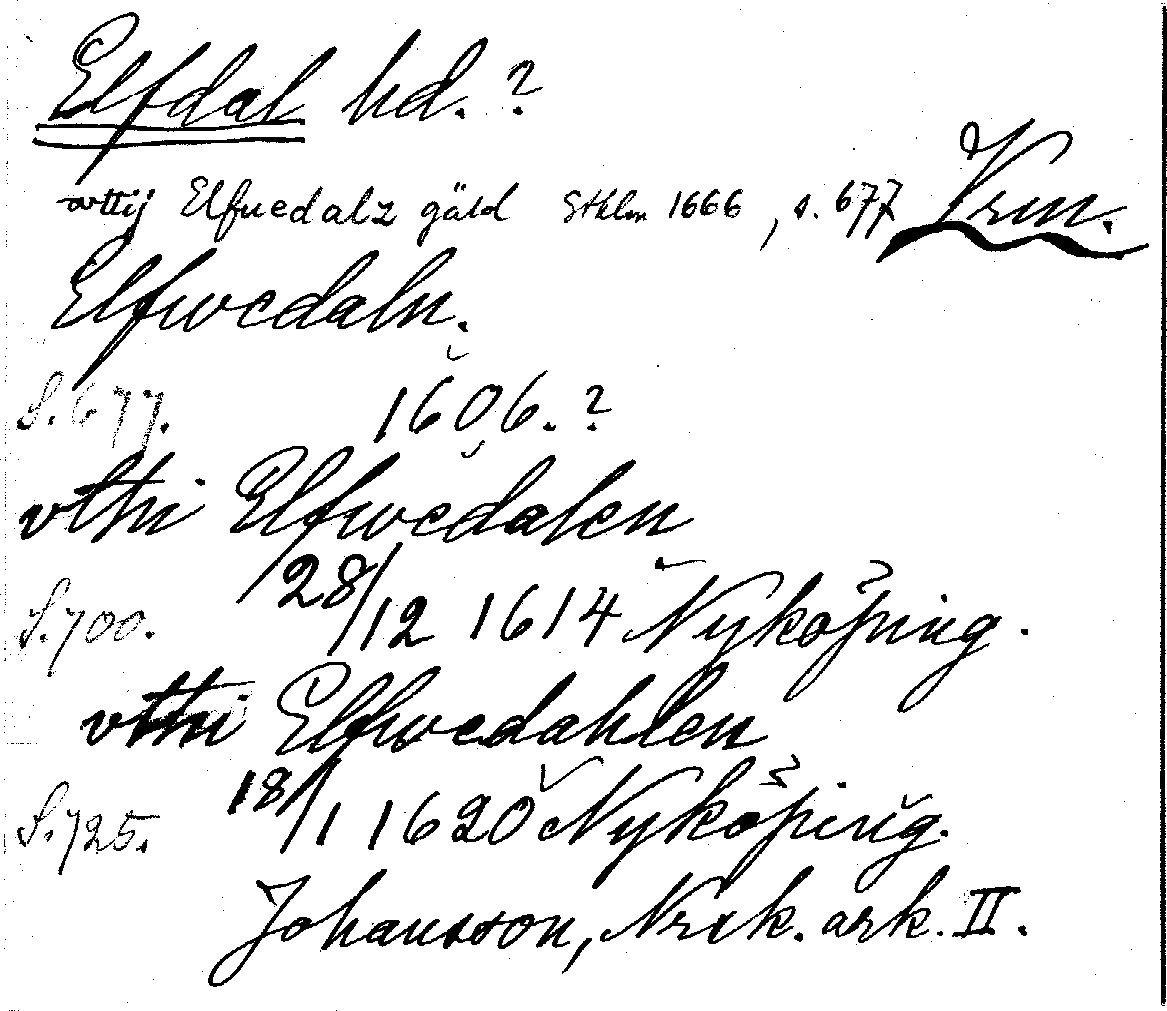 Elfdal hd. ?
Vrm.
vttij Elfuedalz gäld Sthlm 1666, s. 677
Elfwedaln.
S. 677. 1606. ?
vthi Elfwedalen
S. 700. 28/12 1614 Nyköping.
vthi Elfwedahlen
S. 725. 18/1 1620 Nyköping.
Johansson, Nrik. ark. II.